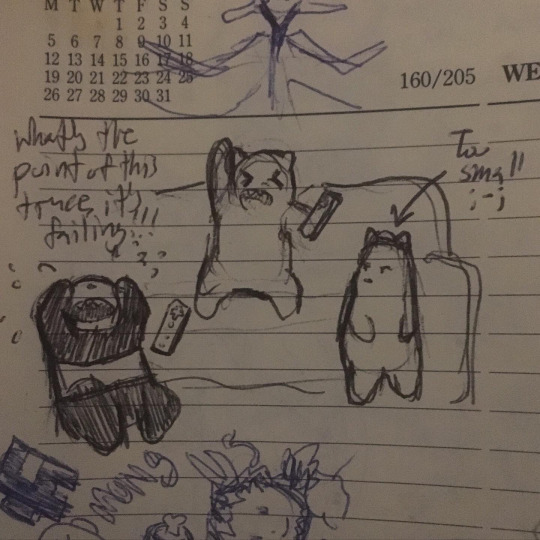 M T W T F S S
1 2 3 4
5 6 7 8 9 10 11
12 13 14 15 16 17 18
19 20 21 22 23 24 25
26 27 28 29 30 31
160/205
WE
what's the
point of this
truce, it's
failing!!!
To
small
;-;